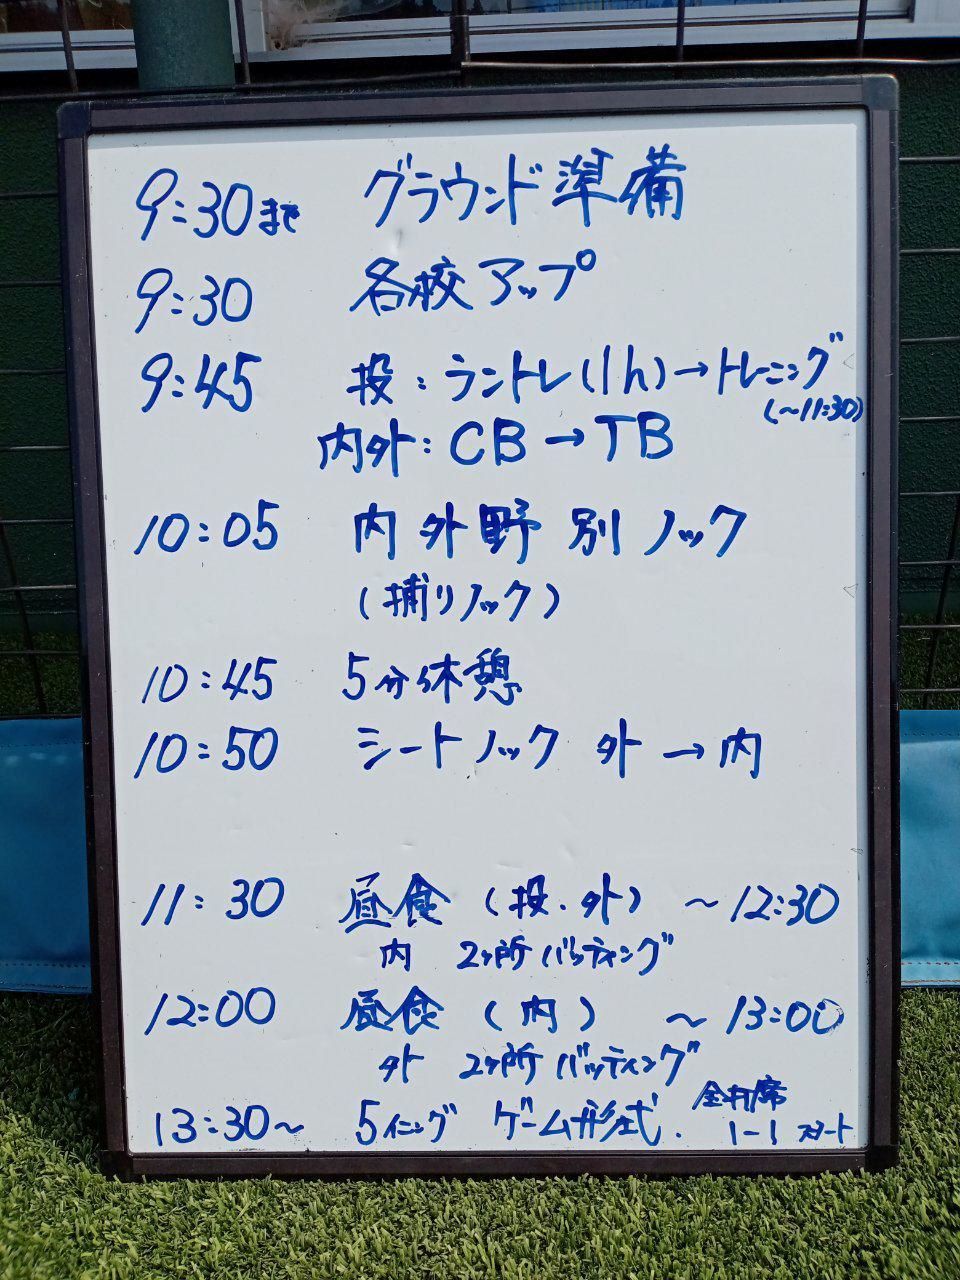 9:30まで グラウンド準備
9:30 各校アップ
9:45 投:ラントレ(1h)→トレーニング
(～11:30)
内外:CB→TB
10:05 内外野別ノック
(捕りノック)
10:45 5分休憩
10:50 シートノック 外→内
11:30 昼食(投・外) ～12:30
内 2ヶ所バッティング
12:00 昼食(内) ～13:00
外 2ヶ所バッティング
13:30～ 5イニング ゲーム形式. 全打席
1-1スタート